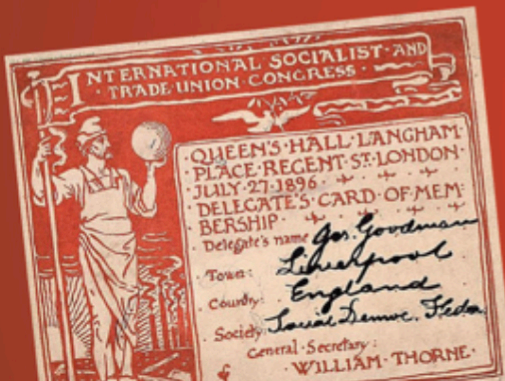 INTERNATIONAL SOCIALIST AND
TRADE UNION CONGRESS
QUEEN'S HALL LANGHAM
PLACE REGENT ST. LONDON
JULY 27 1896
DELEGATE'S CARD OF MEM:
BERSHIP
Delegate's name Jos. Goodman
Town: Liverpool
Country: England
Society: Social Democ. Fedn.
General Secretary:
WILLIAM THORNE